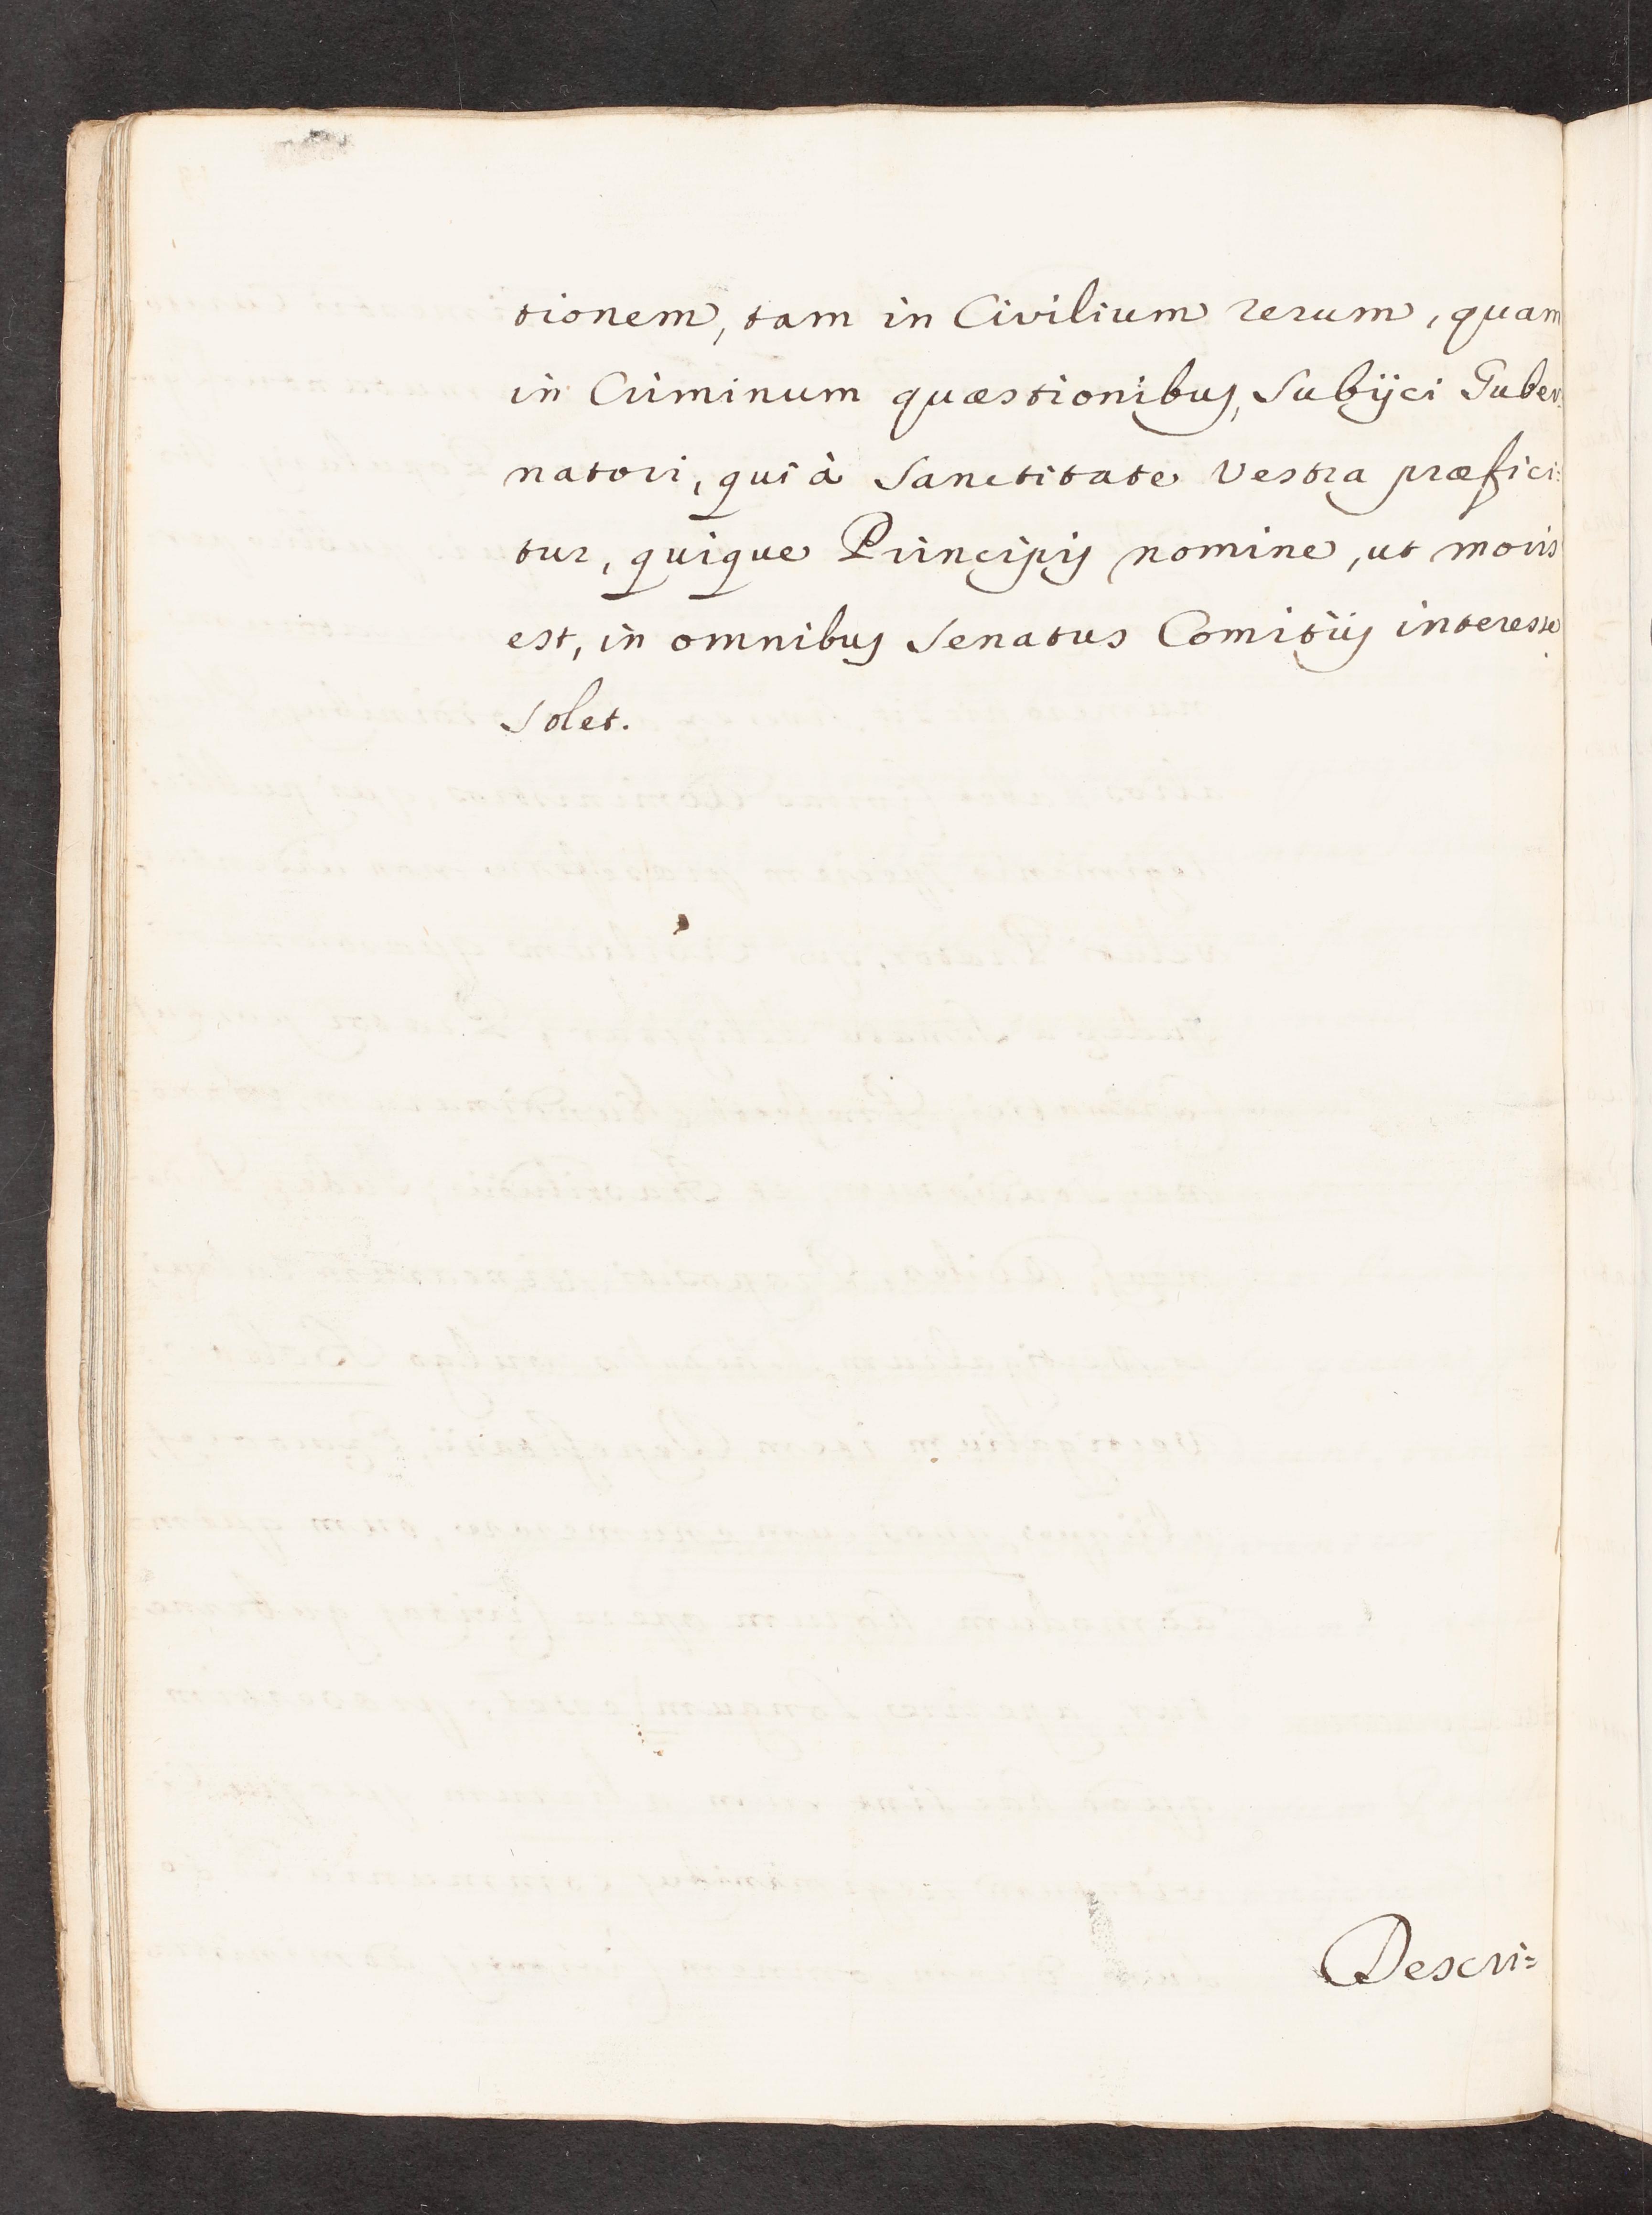 tionem, tam in Civilium rerum, quam
in Criminum quæstionibus, Subijci Guber:
natori, qui à Sanctitate Vestra præfici:
tur, quique Principis nomine, ut moris
est, in omnibus Senatus Comitijs interesse
solet.
Descri=